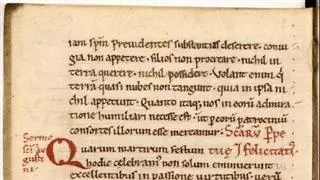 iam sp̄m Prevидentes substantias deserere. coniu
gia non appetere. filios non procreare. nichil in
terra querere. nichil possidere. Volant enim q̄
terrā quasi nubes non tangunt. quia in ipsa ni
chil appetunt. Quanto itaq; nos in eorū admira
tione humiliari necesse est. ut ꝑ eorū patrociniū
consortes illorum esse mereamur. Scārv̄ Perpe
Sermo
sci au
gusti
ni
Quarum martirum festum tue ⁊ felicitatis
hodie celebram' non solum eminerunt
excellentibus in passione uirtutib;